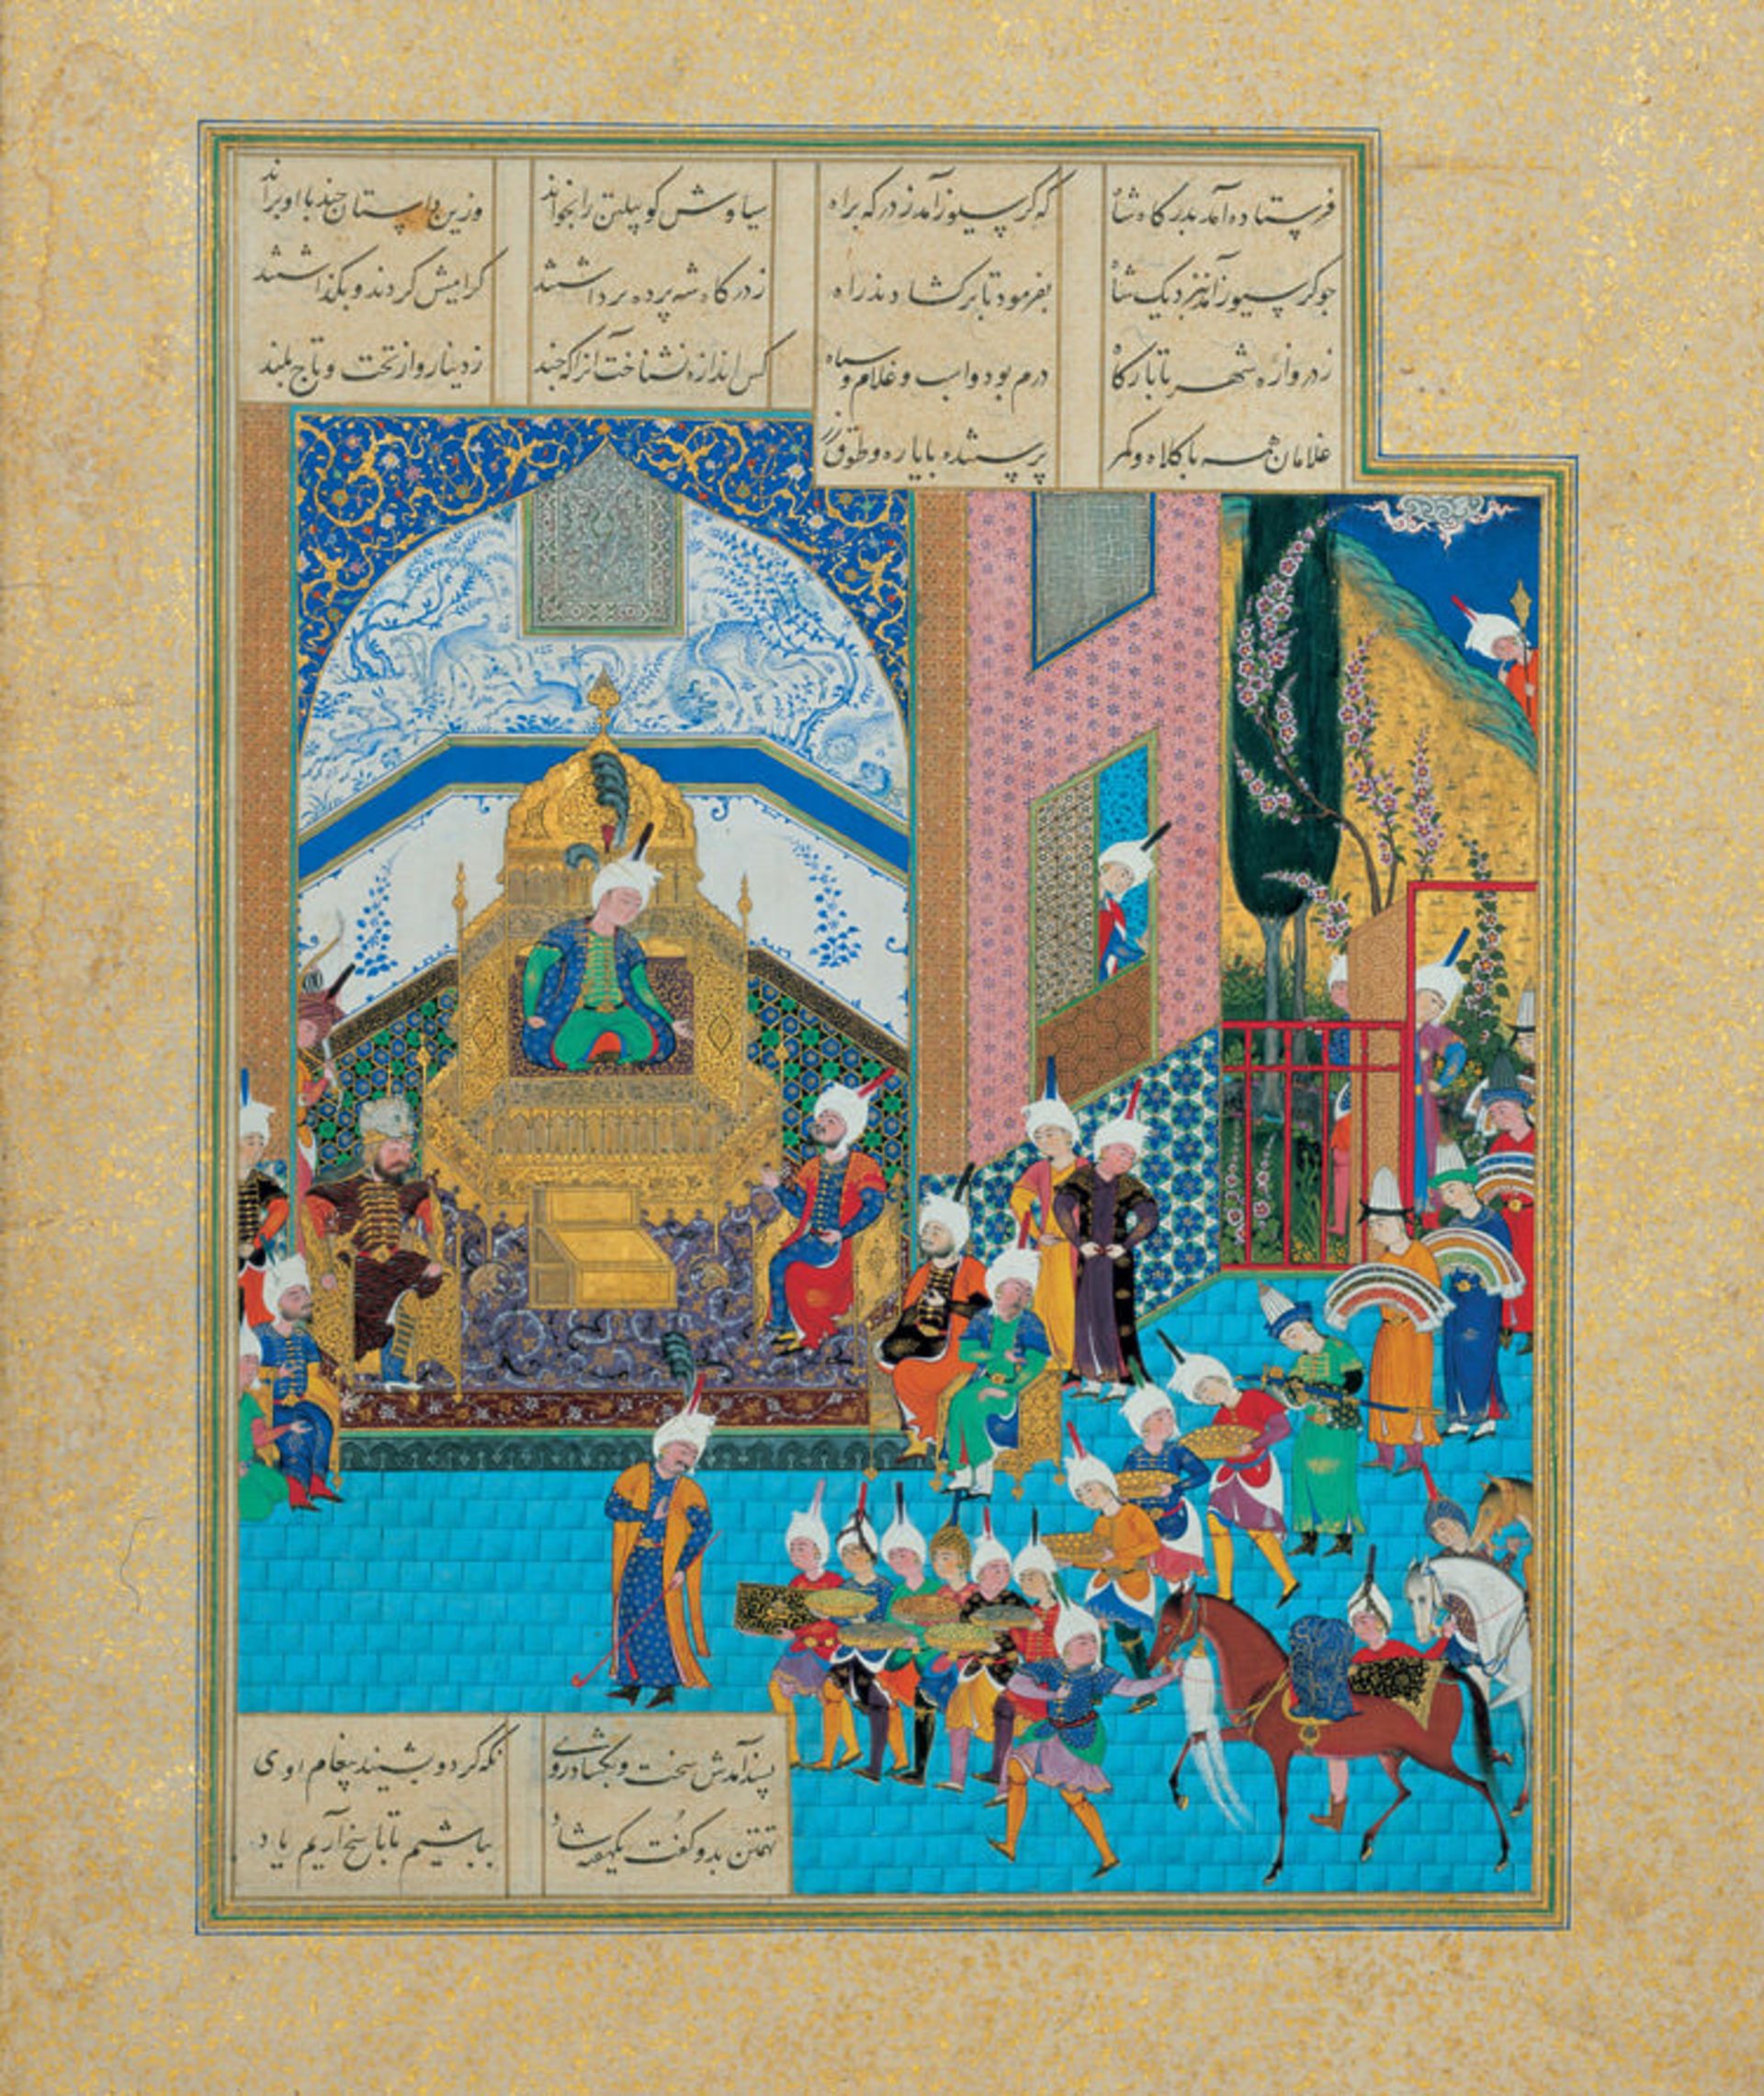 فرستاده آمد بدرگاه شاه که گرسیوز آمد ز درگه براه سیاوش گو پیلتن را بخواند وزین داستان چند با او براند
چو گرسیوز آمد بنزدیک شاه بفرمود تا برگشادند راه ز درگاه شه پرده برداشتند گرامیش کردند و بگذاشتند
ز دروازه شهر تا بارگاه درم بود و اسب و غلام و سپاه کس اندازه نشناخت آنرا که چند ز دینار و از تخت و تاج بلند
غلامان همه با کلاه و کمر پرستنده با یاره و طوق زر
پسند آمدش سخت و بگشاد روی نگه کرد و بشنید پیغام اوی
تهمتن بدو گفت یکهفته شاد بباشیم تا پاسخ آریم یاد